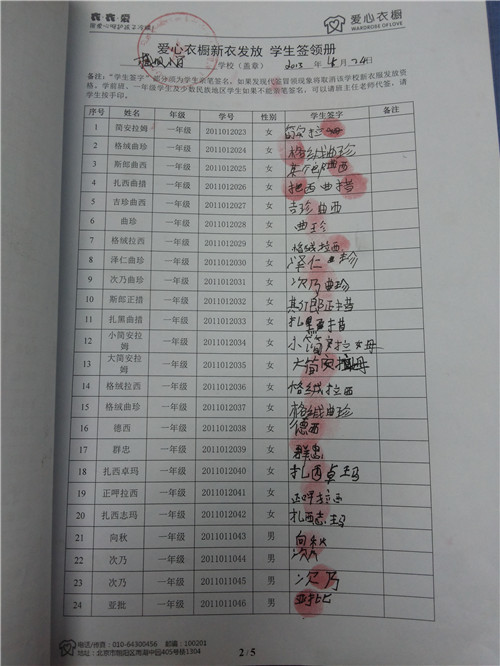 爱心衣橱
WARDROBE OF LOVE
爱心衣橱新衣发放 学生签领册
学校（盖章） 2013 年 5 月 24 日
备注："学生签字"部分须为学生亲笔签名，如果发现代签冒领现象将取消该学校新衣服发放资
格。学前班、一年级学生及少数民族地区学生如果不能亲笔签名，可以请班主任老师代签，请
学生按手印。
序号 姓名 年级 学号 性别 学生签字 备注
1 简安拉姆 一年级 2011012023 女
2 格绒曲珍 一年级 2011012024 女 格绒曲珍
3 斯郎曲西 一年级 2011012025 女
4 扎西曲措 一年级 2011012026 女
5 吉珍曲西 一年级 2011012027 女 吉珍曲西
6 曲珍 一年级 2011012028 女 曲珍
7 格绒拉西 一年级 2011012029 女 格绒拉西
8 泽仁曲珍 一年级 2011012030 女 泽仁曲珍
9 次乃曲珍 一年级 2011012031 女 次乃曲珍
10 斯郎正措 一年级 2011012032 女
11 扎黑曲措 一年级 2011012033 女
12 小简安拉姆 一年级 2011012034 女
13 大简安拉姆 一年级 2011012035 女
14 格绒拉西 一年级 2011012036 女 格绒拉西
15 格绒曲珍 一年级 2011012037 女 格绒曲珍
16 德西 一年级 2011012038 女 德西
17 群忠 一年级 2011012039 女 群忠
18 扎西卓玛 一年级 2011012040 女 扎西卓玛
19 正呷拉西 一年级 2011012041 女 正呷拉西
20 扎西志玛 一年级 2011012042 女 扎西志玛
21 向秋 一年级 2011011043 男 向秋
22 次乃 一年级 2011011044 男
23 次乃 一年级 2011011045 男 次乃
24 亚批 一年级 2011011046 男
电话/传真：010-64300456 邮编：100201
2/5